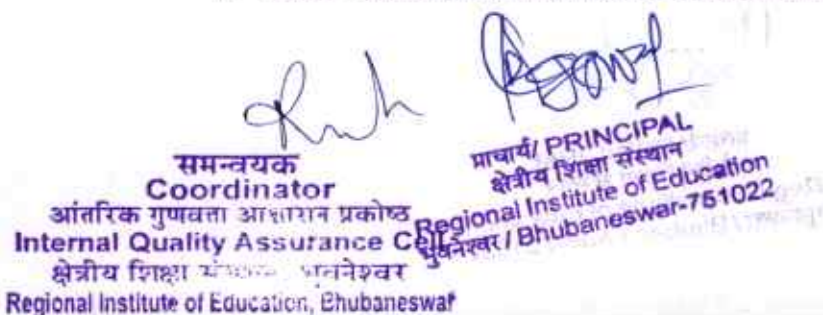 समन्वयक
Coordinator
आंतरिक गुणवत्ता आश्वासन प्रकोष्ठ
Internal Quality Assurance Cell
क्षेत्रीय शिक्षा भुवनेश्वर
Regional Institute of Education, Bhubaneswar
प्राचार्य/ PRINCIPAL
क्षेत्रीय शिक्षा संस्थान
Regional Institute of Education
भुवनेश्वर / Bhubaneswar-751022